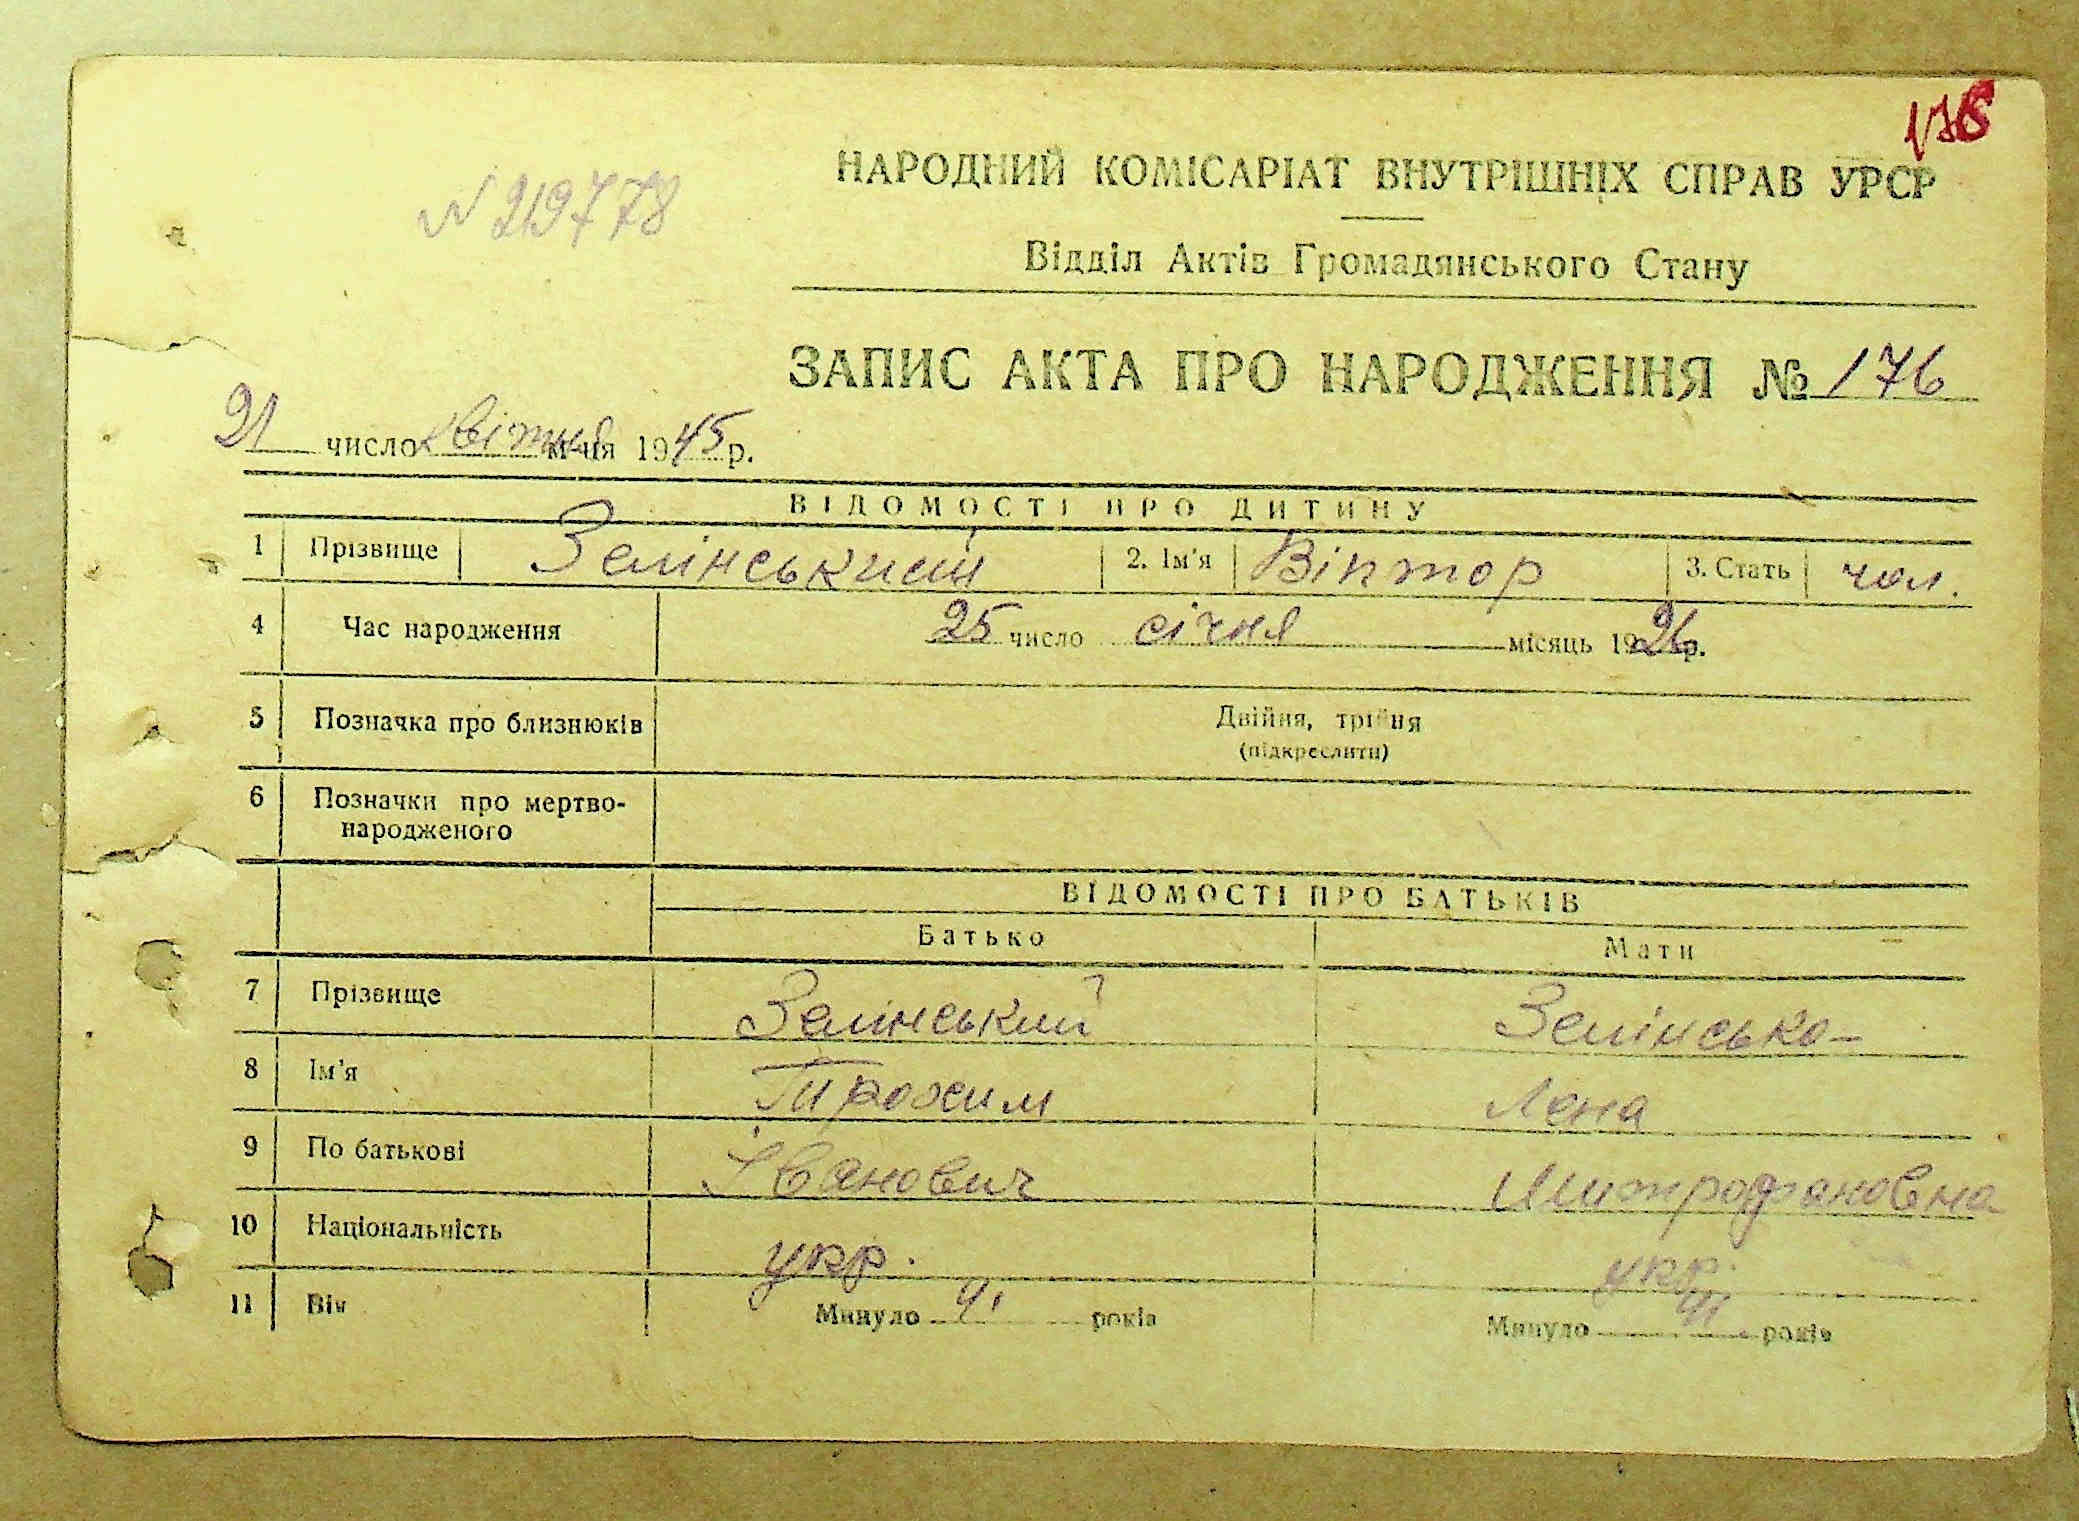 176
№ 219778
НАРОДНИЙ КОМІСАРІАТ ВНУТРІШНІХ СПРАВ УРСР
Відділ Актів Громадянського Стану
ЗАПИС АКТА ПРО НАРОДЖЕННЯ № 176
21 число квітня м-ця 1945 р.
ВІДОМОСТІ ПРО ДИТИНУ
1 Прізвище Зелінський 2. Ім'я Віктор 3. Стать чол.
4 Час народження 25 число січня місяць 1926 р.
5 Позначка про близнюків Двійня, трійня
(підкреслити)
6 Позначки про мертво-
народженого
ВІДОМОСТІ ПРО БАТЬКІВ
Батько Мати
7 Прізвище Зелінський Зелінська
8 Ім'я Трохим Лена
9 По батькові Іванович Митрофановна
10 Національність укр. укр.
11 Вік Минуло років Минуло років